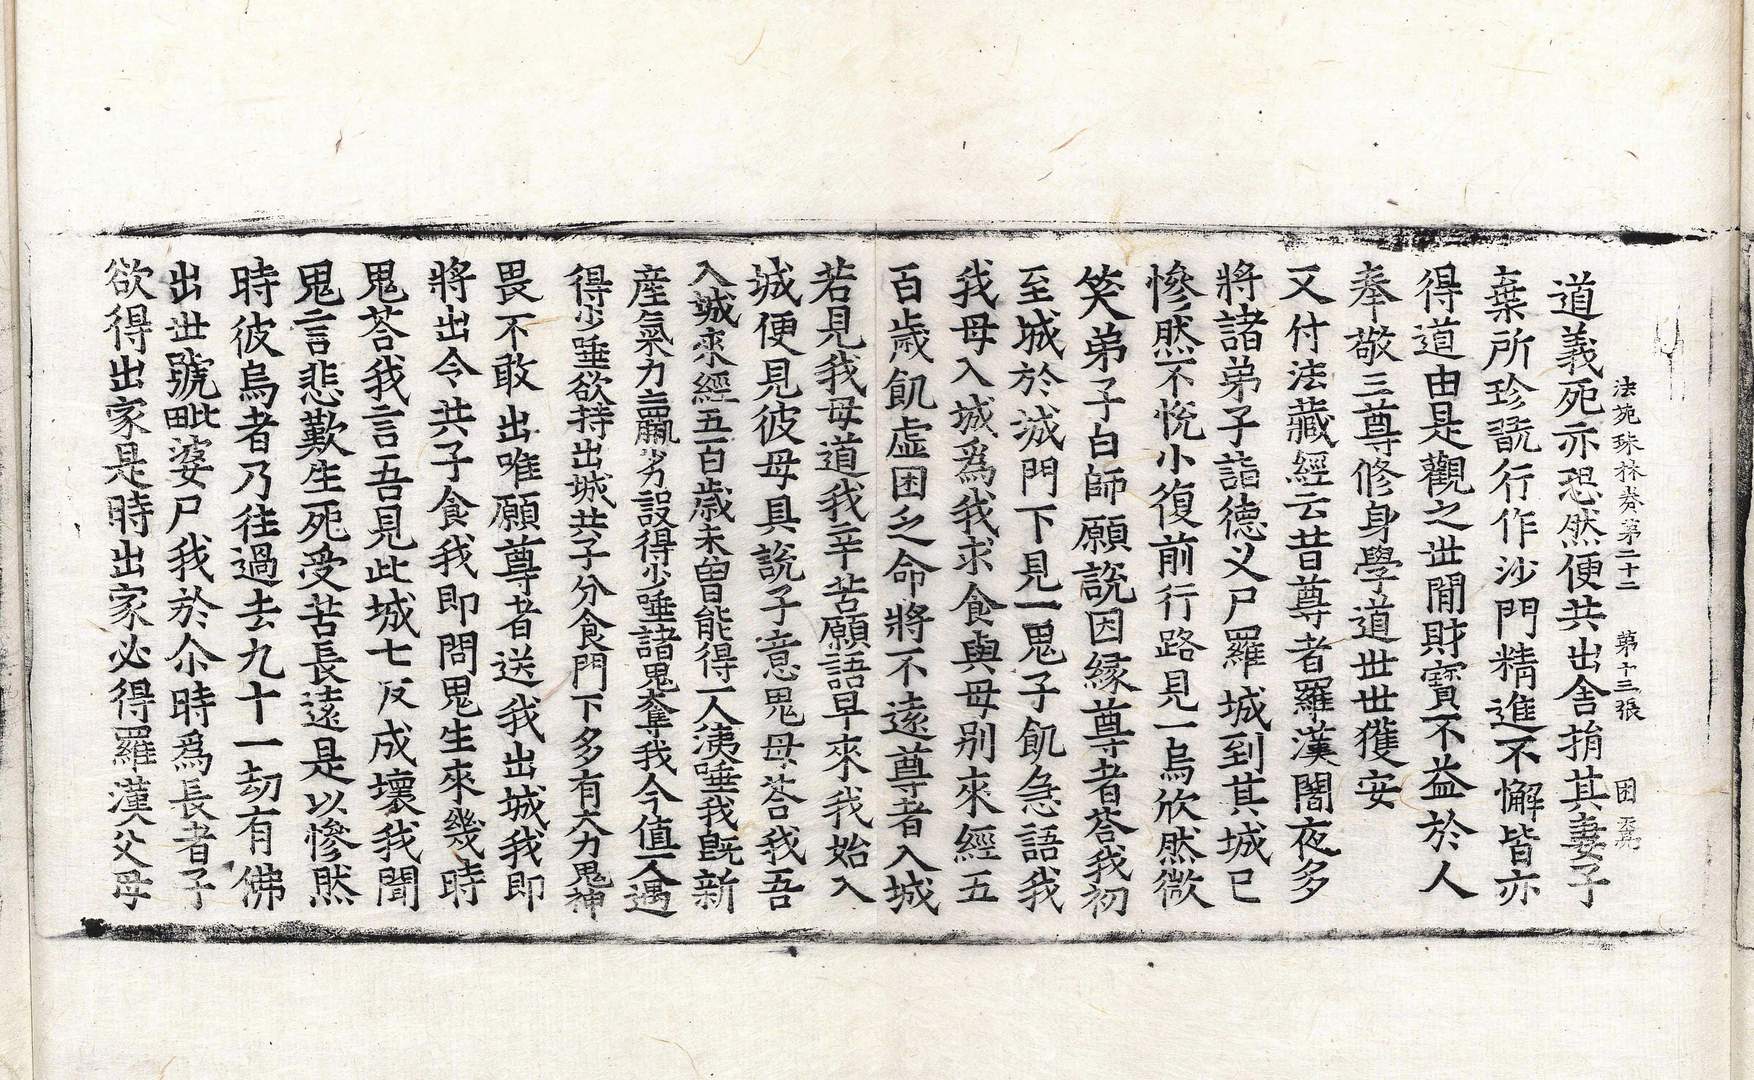 法苑珠林卷第二十二 第十三張 困
道義死亦恐然便共出舍捐其妻子
棄所珍翫行作沙門精進不懈皆亦
得道由是觀之世閒財寶不益於人
奉敬三尊修身學道世世獲安
又付法藏經云昔尊者羅漢闍夜多
將諸弟子詣德义尸羅城到其城已
慘然不悅小復前行路見一烏欣然微
笑弟子白師願說因緣尊者荅我初
至城於城門下見一鬼子飢急語我
我母入城爲我求食與母別來經五
百歲飢虛困乏命將不遠尊者入城
若見我母道我辛苦願語早來我始入
城便見彼母具說子意鬼母荅我吾
入城來經五百歲未曾能得一人洟唾我旣新
産氣力羸劣設得少唾諸鬼奪我今值一人遇
得少唾欲持出城共子分食門下多有大力鬼神
畏不敢出唯願尊者送我出城我即
將出令共子食我即問鬼生來幾時
鬼荅我言吾見此城七反成壞我聞
鬼言悲歎生死受苦長遠是以慘然
時彼烏者乃往過去九十一劫有佛
出世號毗婆尸我於尒時爲長者子
欲得出家是時出家必得羅漢父母